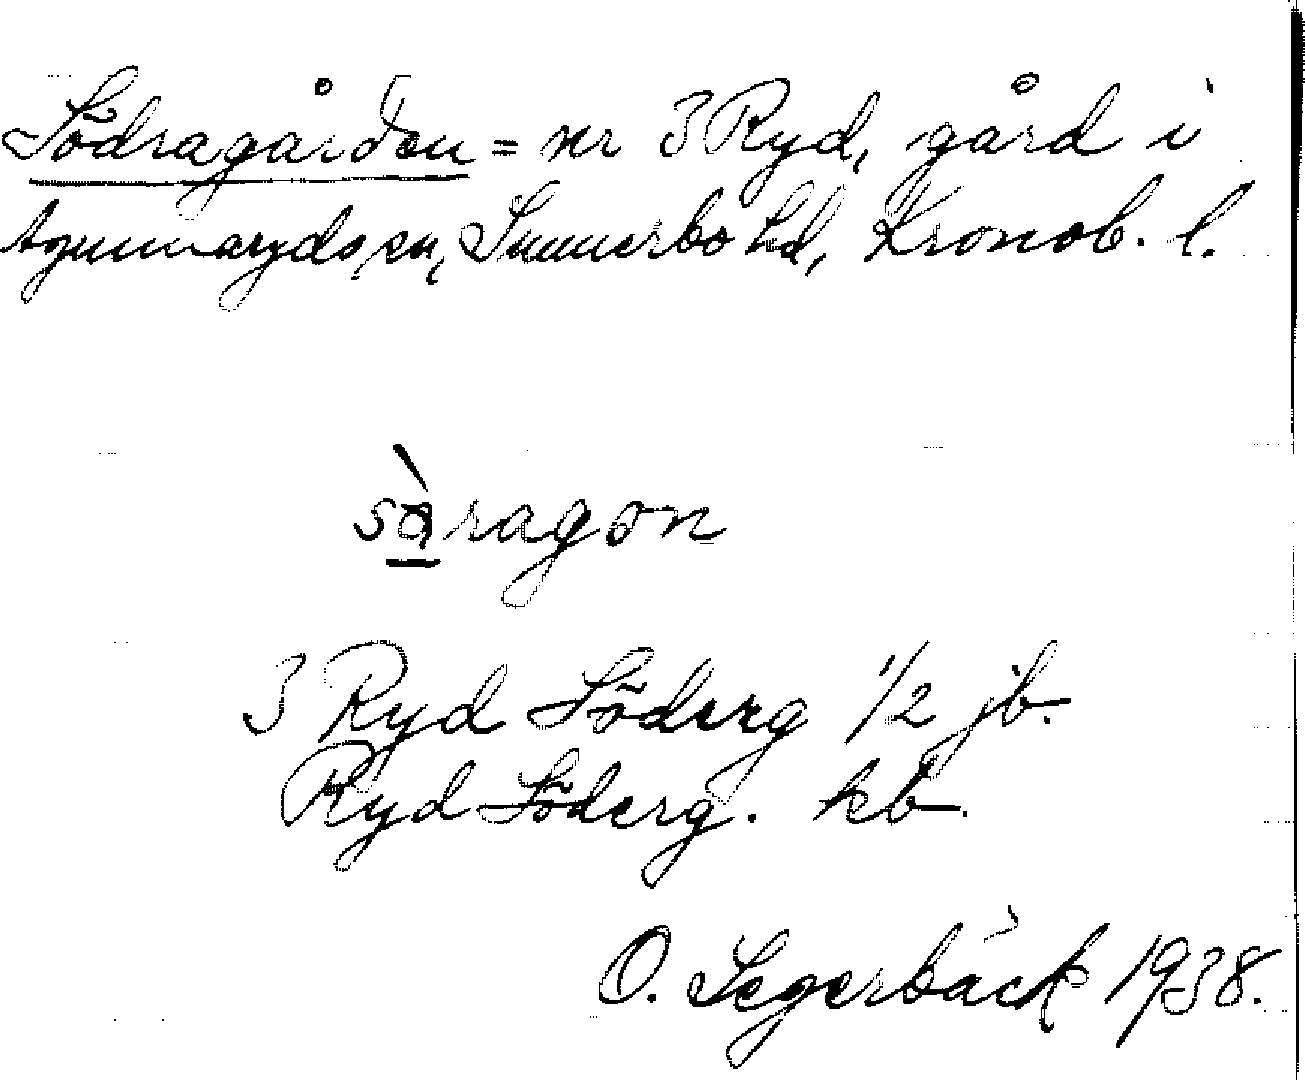 Södragården = nr 3 Ryd, gård i
Agunnaryds sn, Sunnerbo hd, Kronob. l.
sàragon
3 Ryd Söderg 1/2 jb.
Ryd Söderg. kb.
O. Segerbäck 1938.